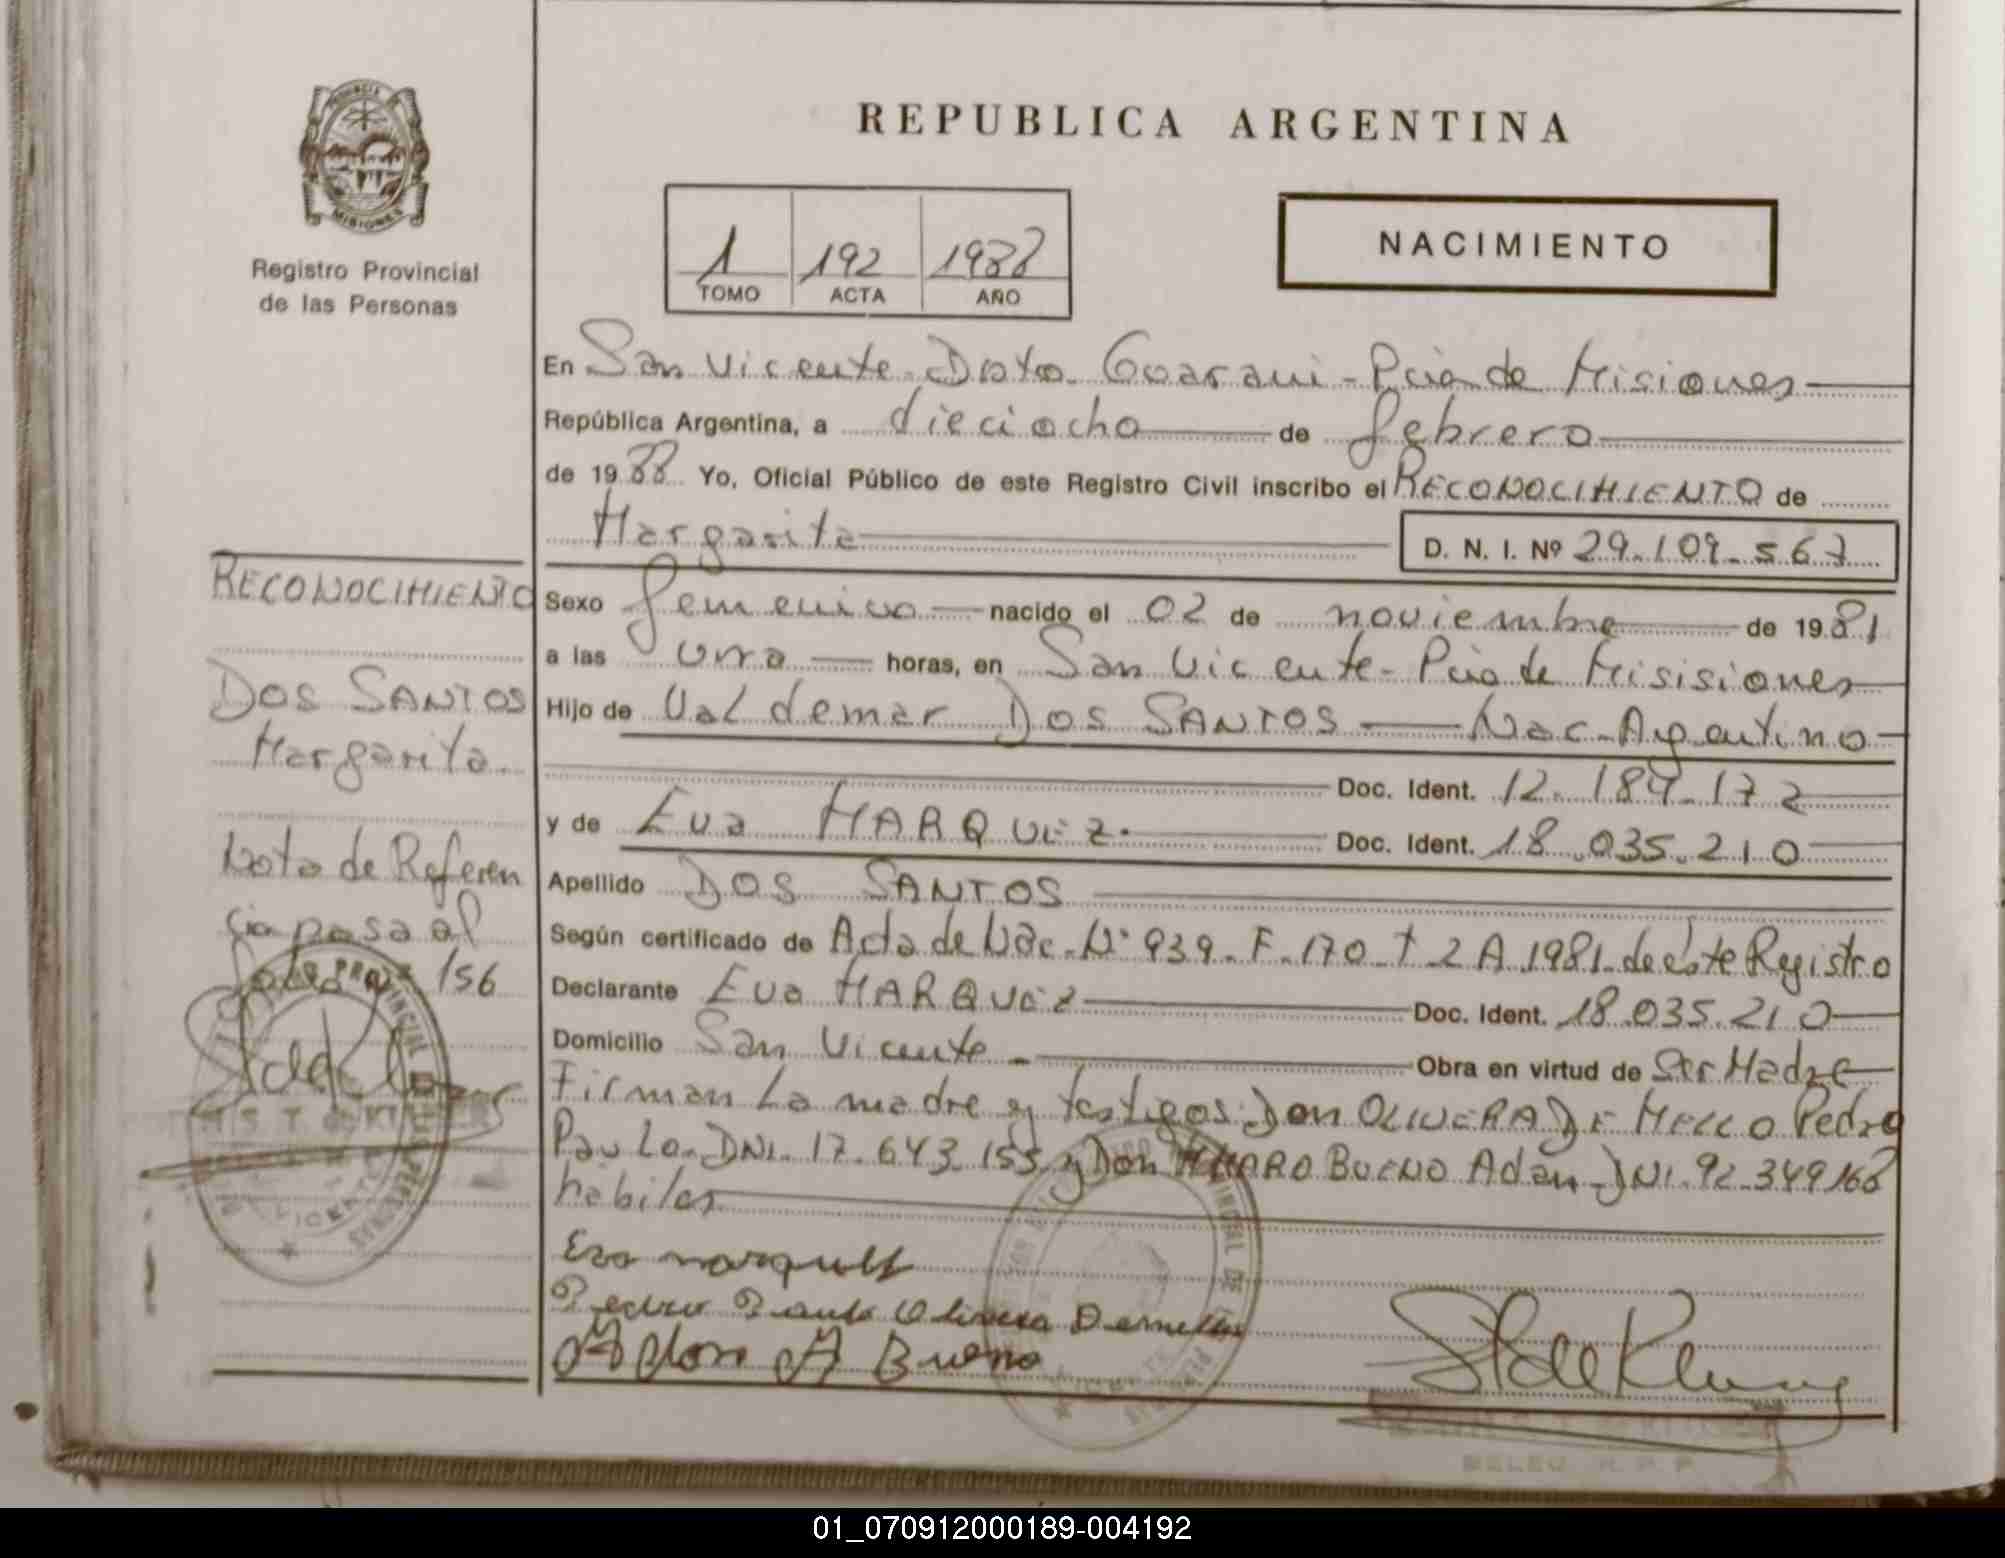 REPUBLICA ARGENTINA
PROVINCIA DE
MISIONES
Registro Provincial
de las Personas
1 192 1988
TOMO ACTA AÑO
NACIMIENTO
En San Vicente Dpto. Guarani - Pcia de Misiones
República Argentina, a dieciocho de febrero
de 1988 Yo, Oficial Público de este Registro Civil inscribo el RECONOCIMIENTO de
Margarita D. N. I. Nº 29.109.567
Sexo femenino nacido el 02 de noviembre de 1981
a las una horas, en San Vicente - Pcia de Misisiones
Hijo de Valdemar DOS SANTOS Nac. Argentino
Doc. Ident. 12.184.172
y de Eva MARQUEZ. Doc. Ident. 18.035.210
Apellido DOS SANTOS
Según certificado de Acta de Nac. Nº 939. F. 170 T 2 A 1981 de este Registro
Declarante Eva MARQUEZ Doc. Ident. 18.035.210
Domicilio San Vicente Obra en virtud de Ser Madre
Firman La madre y testigos Don OLIVERA DE MELLO Pedro
Paulo. DNI. 17.643.155 y Don AMARO BUENO Adan. DNI. 92.349168
habiles
Eva marquez
Pedro Paulo Olivera Demello
Adan A Bueno
RECONOCIMIENTO
DOS SANTOS
Margarita.
Nota de Referen
cia pasa al
folio 156
01_070912000189-004192